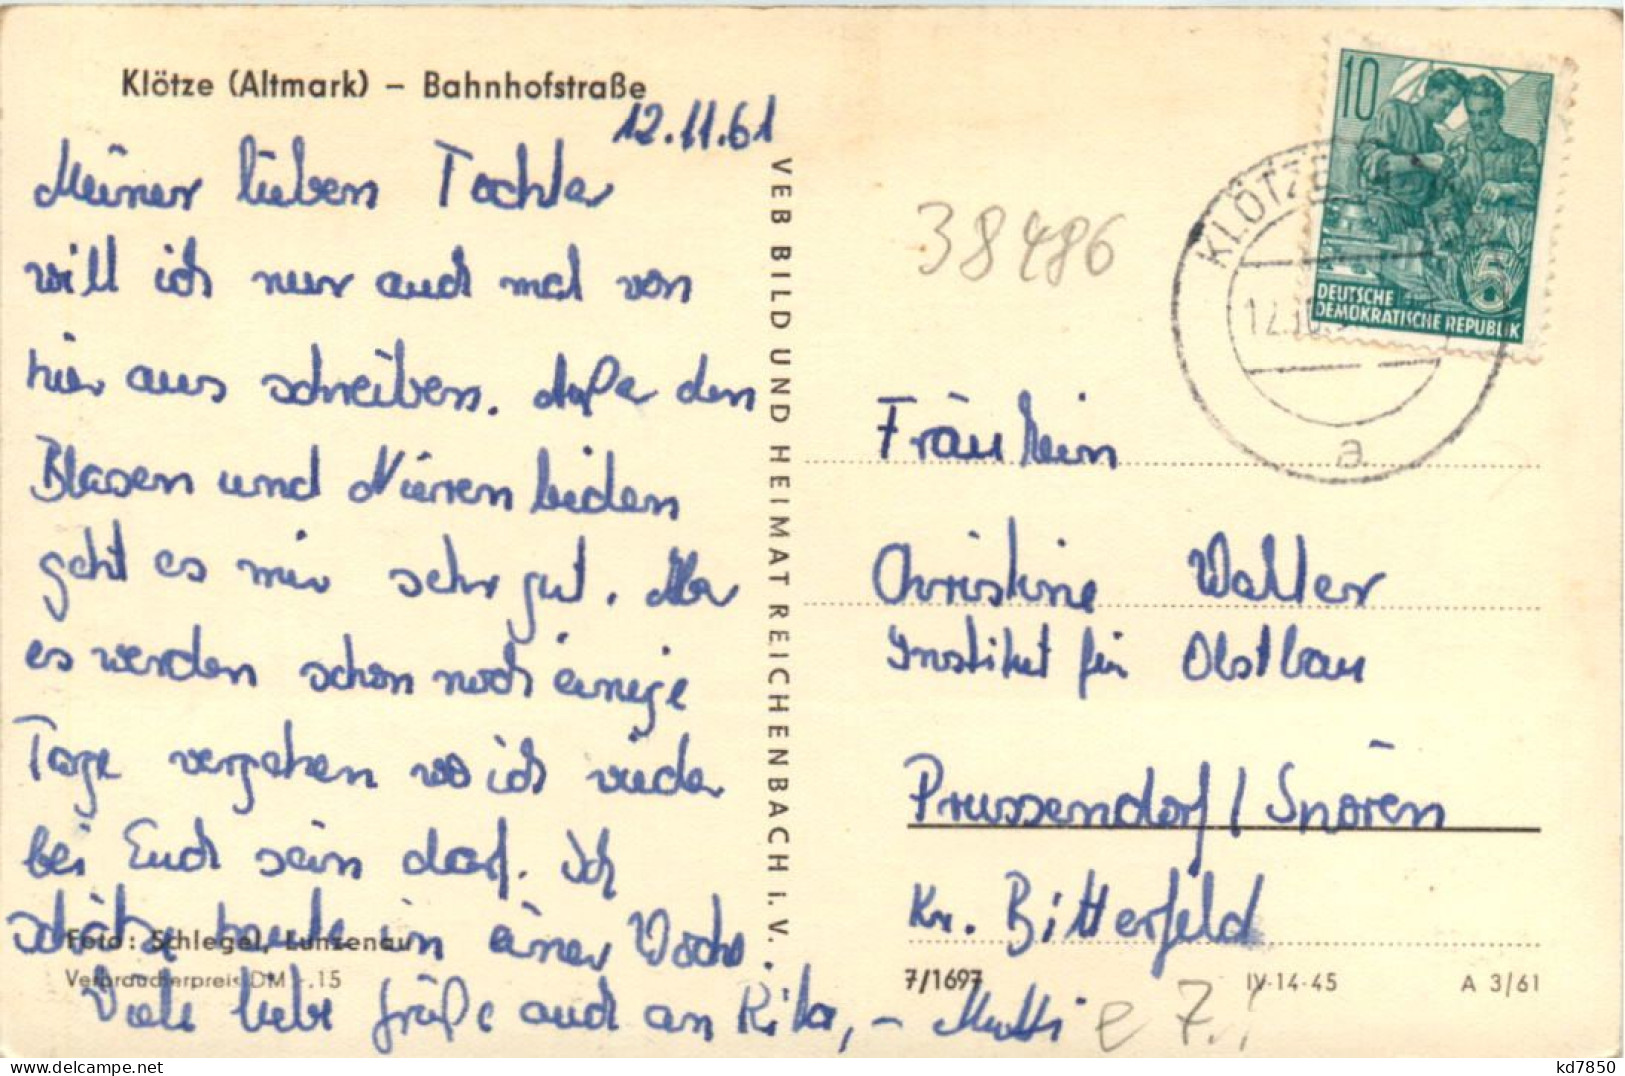 Klötze (Altmark) – Bahnhofstraße
12.11.61
Meiner lieben Tochter
will ich nur auch mal von
hier aus schreiben. Außer den
Blasen und Nieren leiden
geht es mir sehr gut. Aber
es werden schon noch einige
Tage vergehen wo ich wieder
bei Euch sein darf. Ich
schätze heute in einer Woche.
Foto: Schlegel, Lunzenau
Verbraucherpreis DM -.15
Viele liebe Grüße auch an Rita, – Mutti
VEB BILD UND HEIMAT REICHENBACH I. V.
38486
10
DEUTSCHE
DEMOKRATISCHE REPUBLIK
5
KLÖTZE
a
Fräulein
Christine Walter
Institut für Obstbau
Prussendorf /
Kr. Bitterfeld
7/1697 IV-14-45 A 3/61
kd7850